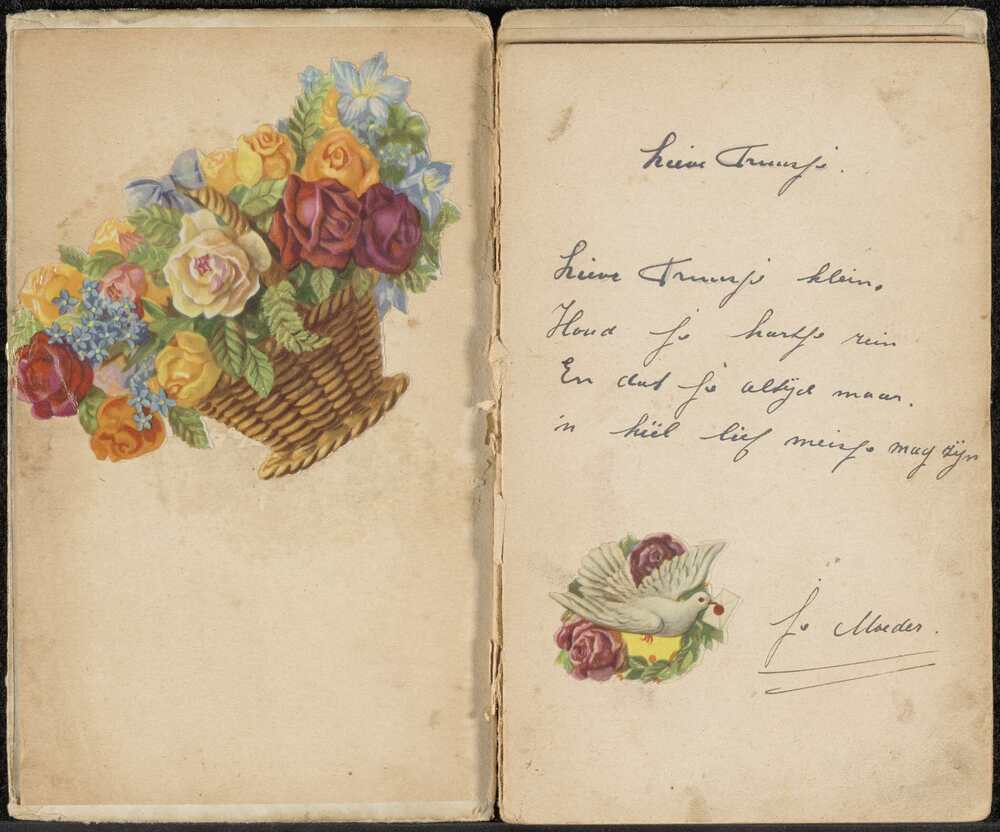 Lieve Truusje.
Lieve Truusje klein,
Houd je hartje rein
En dat je altijd maar.
'n hëel lief meisje mag zijn
Je Moeder.